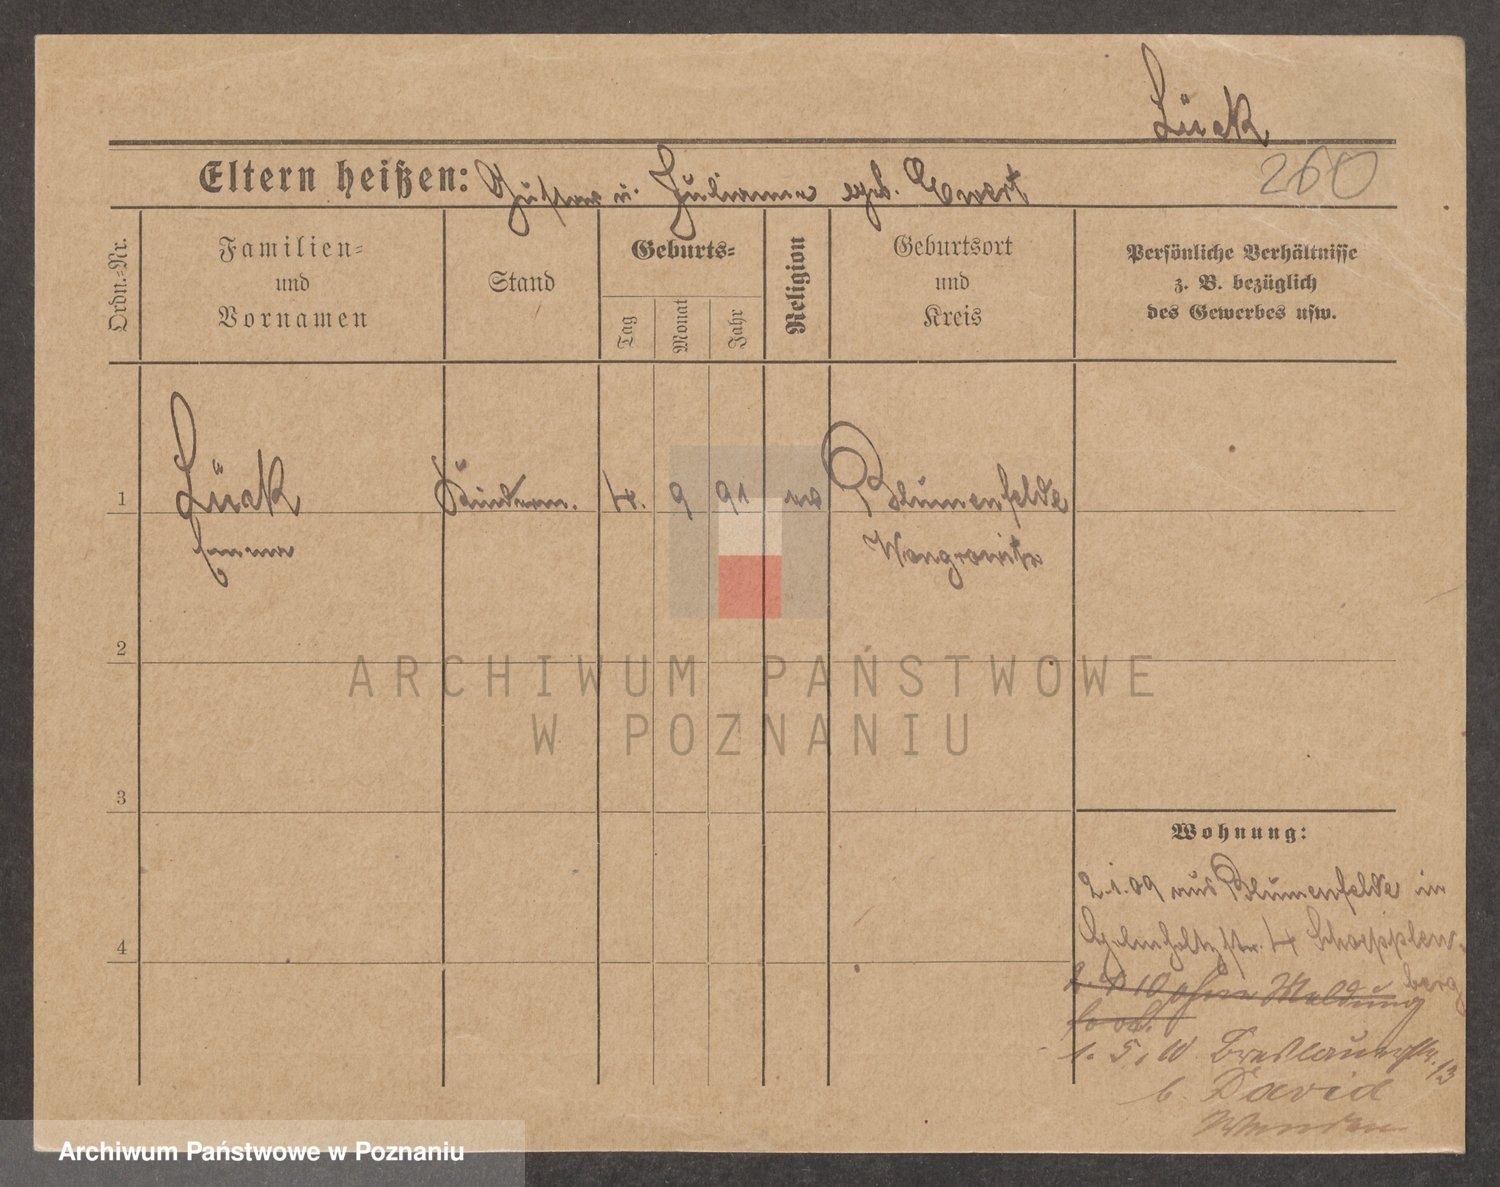 Lück
260
Eltern heißen: Gustav u. Julianna geb. Ewert
Ordn.=Nr.
Familien=
und
Vornamen
Stand
Geburts=
Tag
Monat
Jahr
Religion
Geburtsort
und
Kreis
Persönliche Verhältnisse
z. B. bezüglich
des Gewerbes usw.
1
Lück
Emma
Kinderm.
4.
9
91
Blumenfelde
Wongrowitz
2
ARCHIWUM PAŃSTWOWE
W POZNANIU
3
4
Wohnung:
2.1.09 aus Blumenfelde in
str. 4
10 ohne Meldung
fort.
1. 5. 10 Breslauerstr. 13
b. David
Archiwum Państwowe w Poznaniu